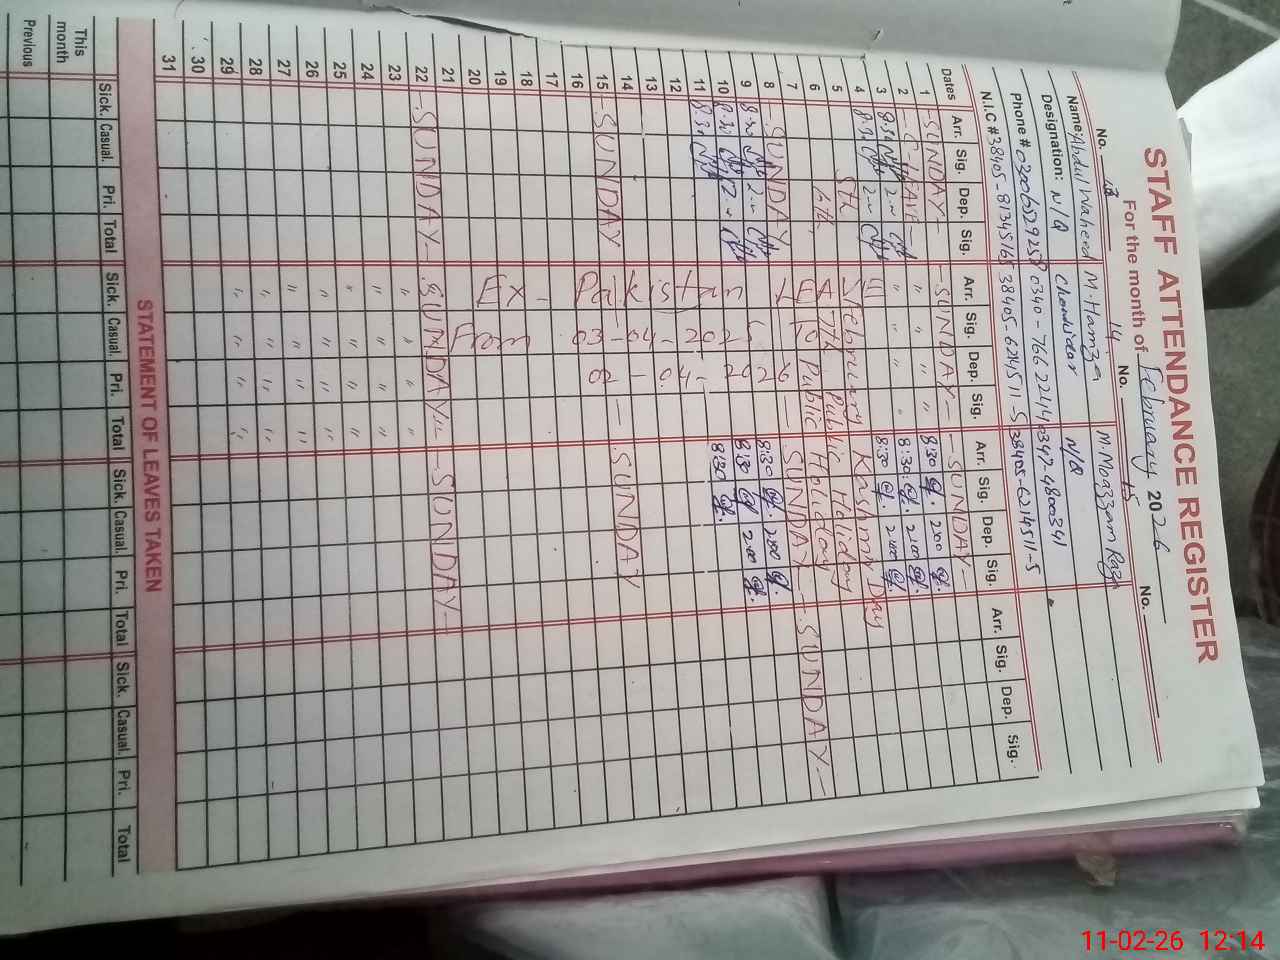 STAFF ATTENDANCE REGISTER
For the month of February 2026
No. 13 No. 14 No. 15 No.
Name: Abdul Waheed M. Hamza M. Moazzam Raza
Designation: N/Q Chowkidar N/Q
Phone # 03006529258 0340-7662244 0347-4800341
N.I.C # 38405-8134516 38405-6214511-5 38405-6214511-5
Dates Arr. Sig. Dep. Sig. Arr. Sig. Dep. Sig. Arr. Sig. Dep. Sig. Arr. Sig. Dep. Sig.
1 -SUNDAY- -SUNDAY- -SUNDAY-
2 -C-LEAVE- " " " " 8:30 2:00
3 8:30 " " " " 8:30 2:00
4 8:30 8:30 2:00
5 5th February Kashmir Day
6 6th Public Holiday
7 7th Public Holiday
8 -SUNDAY -SUNDAY- -SUNDAY-
9 8:30 8:30 2:00
10 8:30 8:30 2:00
11 8:30 8:30
12
13
14
15 -SUNDAY -SUNDAY
16
17
18
19
20
21
22 -SUNDAY- -SUNDAY- -SUNDAY-
23 " " " "
24 " " " "
25 " " " "
26 " " " "
27 " " " "
28 " " " "
29 " " " "
30
31
Ex- Pakistan LEAVE
From 03-04-2025 TO
02-04-2026
STATEMENT OF LEAVES TAKEN
Sick. Casual. Pri. Total Sick. Casual. Pri. Total Sick. Casual. Pri. Total Sick. Casual. Pri. Total
This month
Previous
11-02-26 12:14